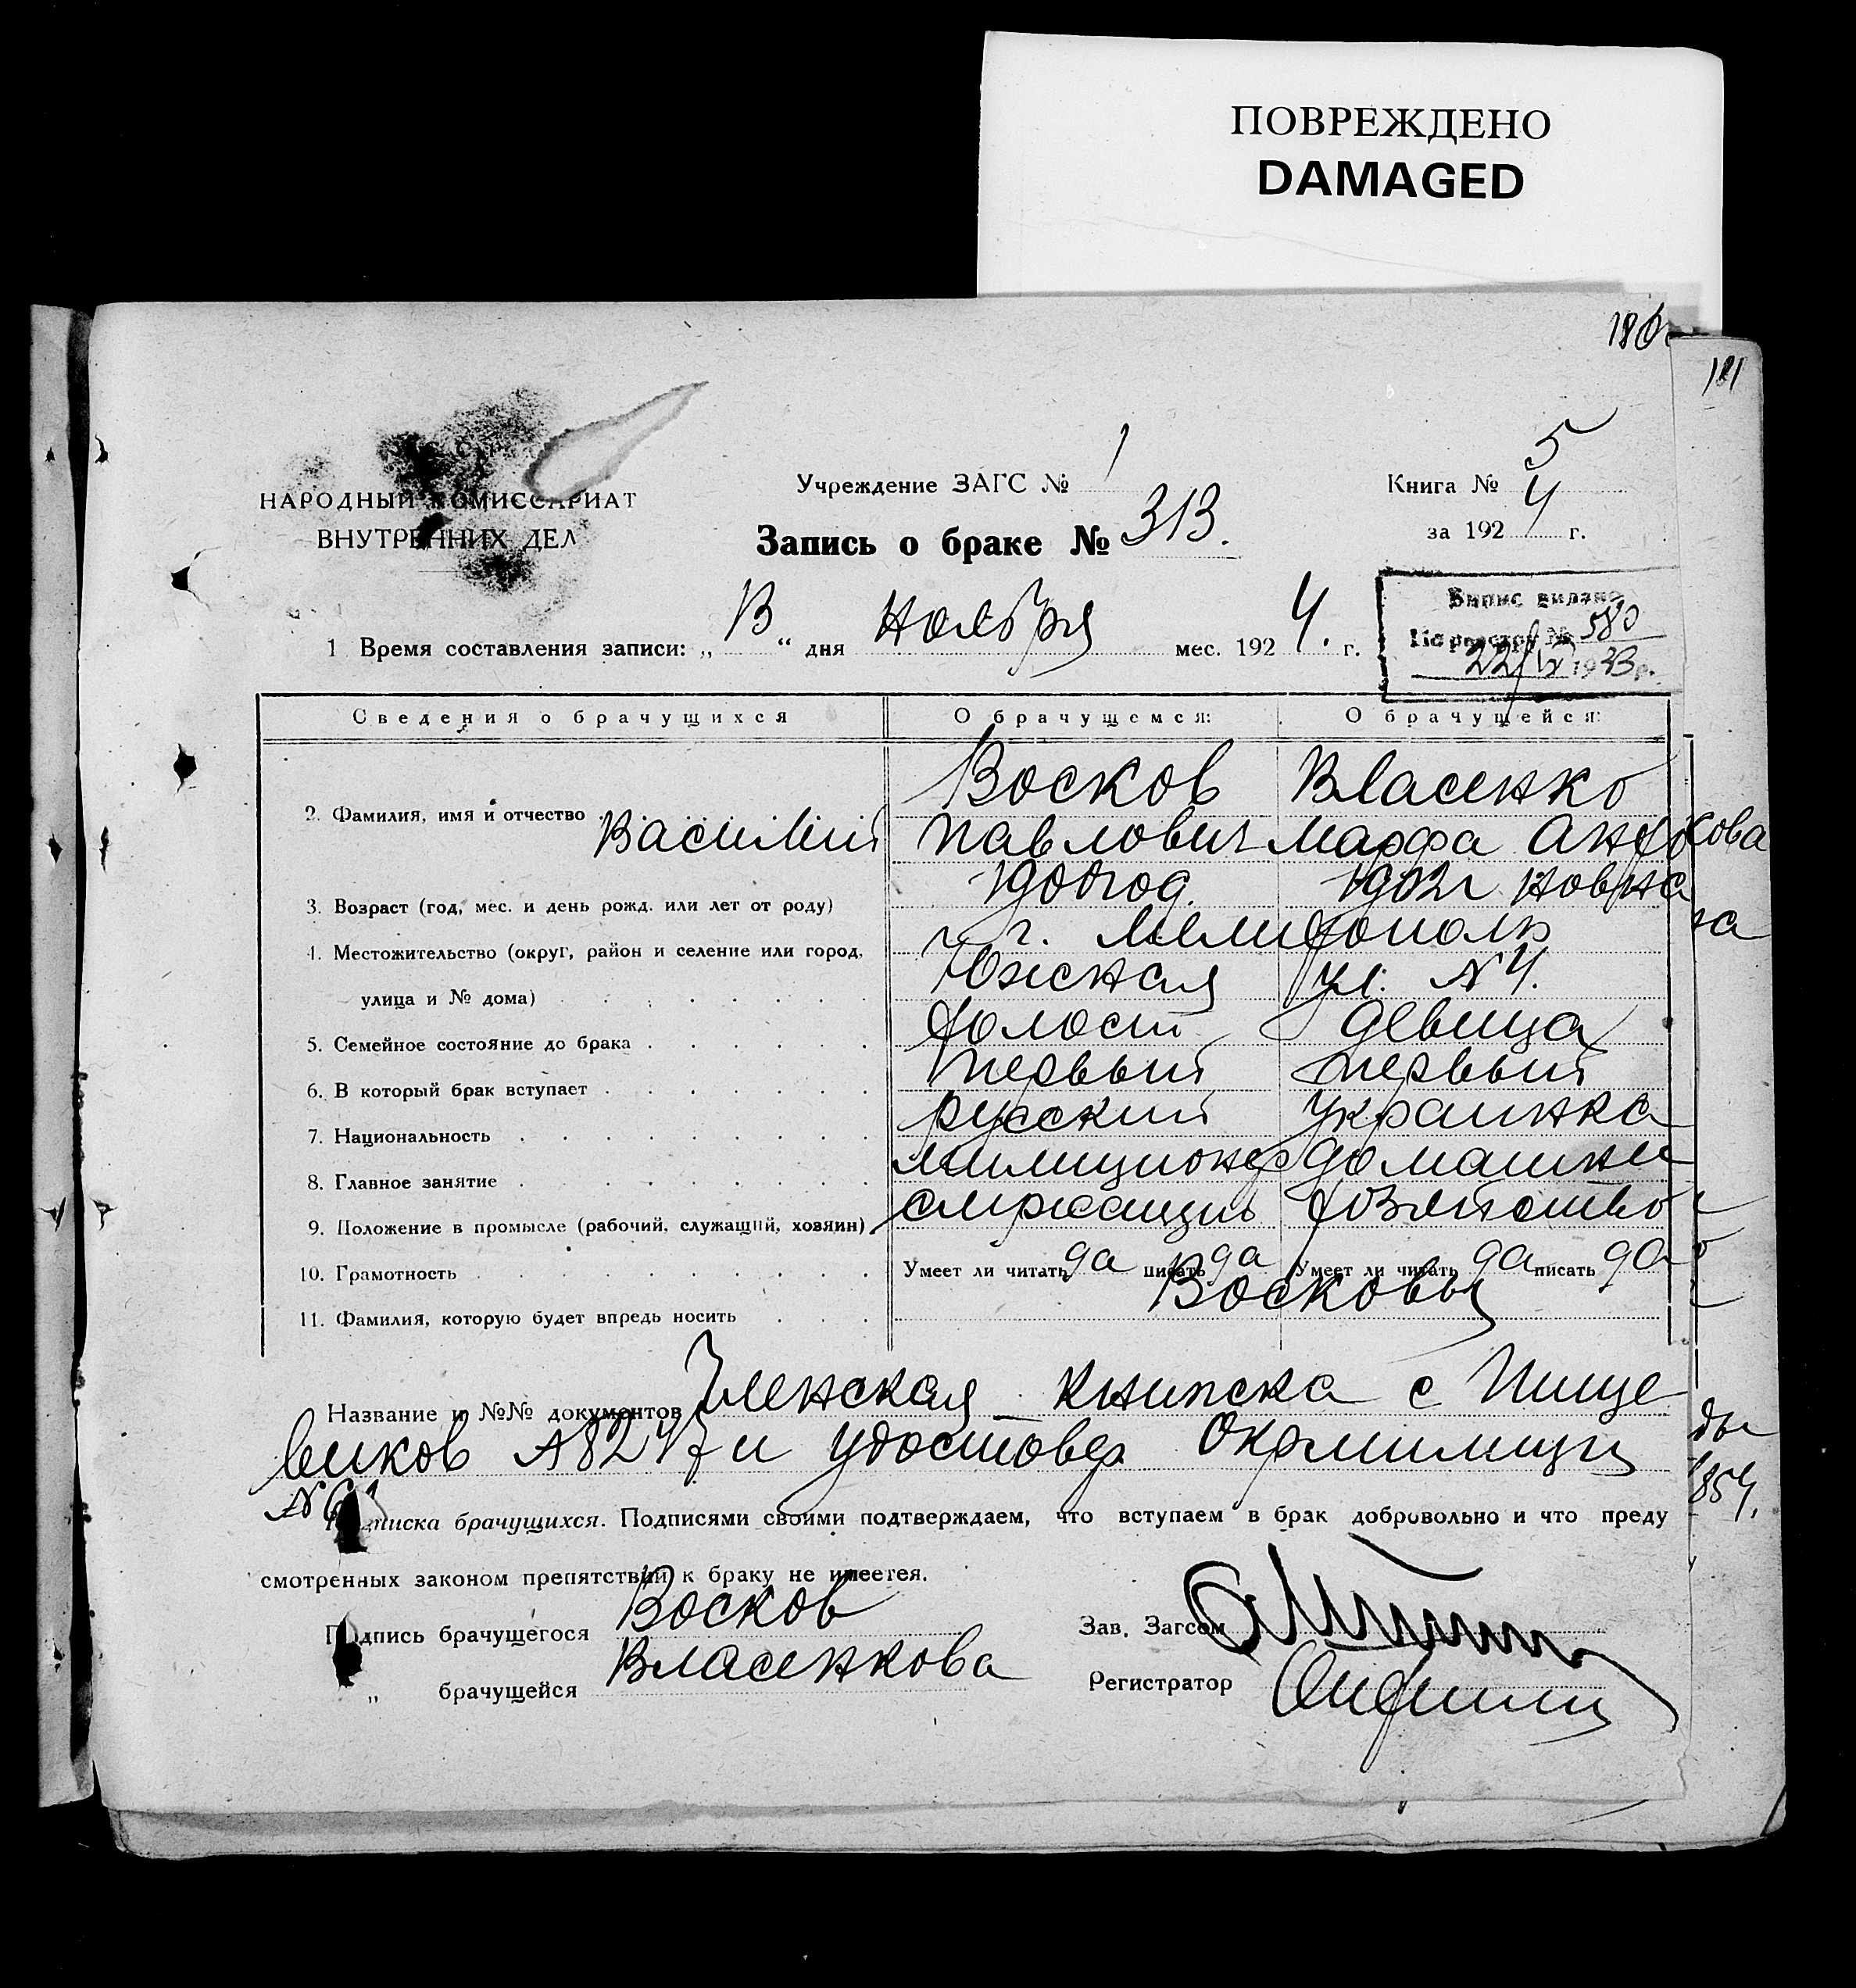 ПОВРЕЖДЕНО
DAMAGED
НАРОДНЫЙ КОМИССАРИАТ
ВНУТРЕННИХ ДЕЛ
Учреждение ЗАГС № 1
Книга № 5
за 1924 г.
Запись о браке № 313.
Випис видано
По реестру № 580
22/IV 1933 р.
1 Время составления записи: „13“ дня ноября мес. 1924. г.
Сведения о брачущихся О брачущемся: О брачущейся:
Восков Власенко
2. Фамилия, имя и отчество Василий Павлович Марфа
3. Возраст (год, мес. и день рожд. или лет от роду) 1900 год. 1902 г
4. Местожительство (округ, район и селение или город, г. Мелитополь
улица и № дома) Южная ул. №4.
5. Семейное состояние до брака холост девица
6. В который брак вступает первый первый
7. Национальность русский украинка
8. Главное занятие милиционер домашнее
9. Положение в промысле (рабочий, служащий, хозяин) служащий хозяйство
10. Грамотность Умеет ли читать да писать да Умеет ли читать да писать да
11. Фамилия, которую будет впредь носить Восковы
Название и №№ документов Членская книжка с Пище
виков №8247 и удостовер. Окрмилиции
№
Подписка брачущихся. Подписями своими подтверждаем, что вступаем в брак добровольно и что преду
смотренных законом препятствий к браку не имеется.
Подпись брачущегося Восков
„ брачущейся Власенкова
Зав. Загсом
Регистратор